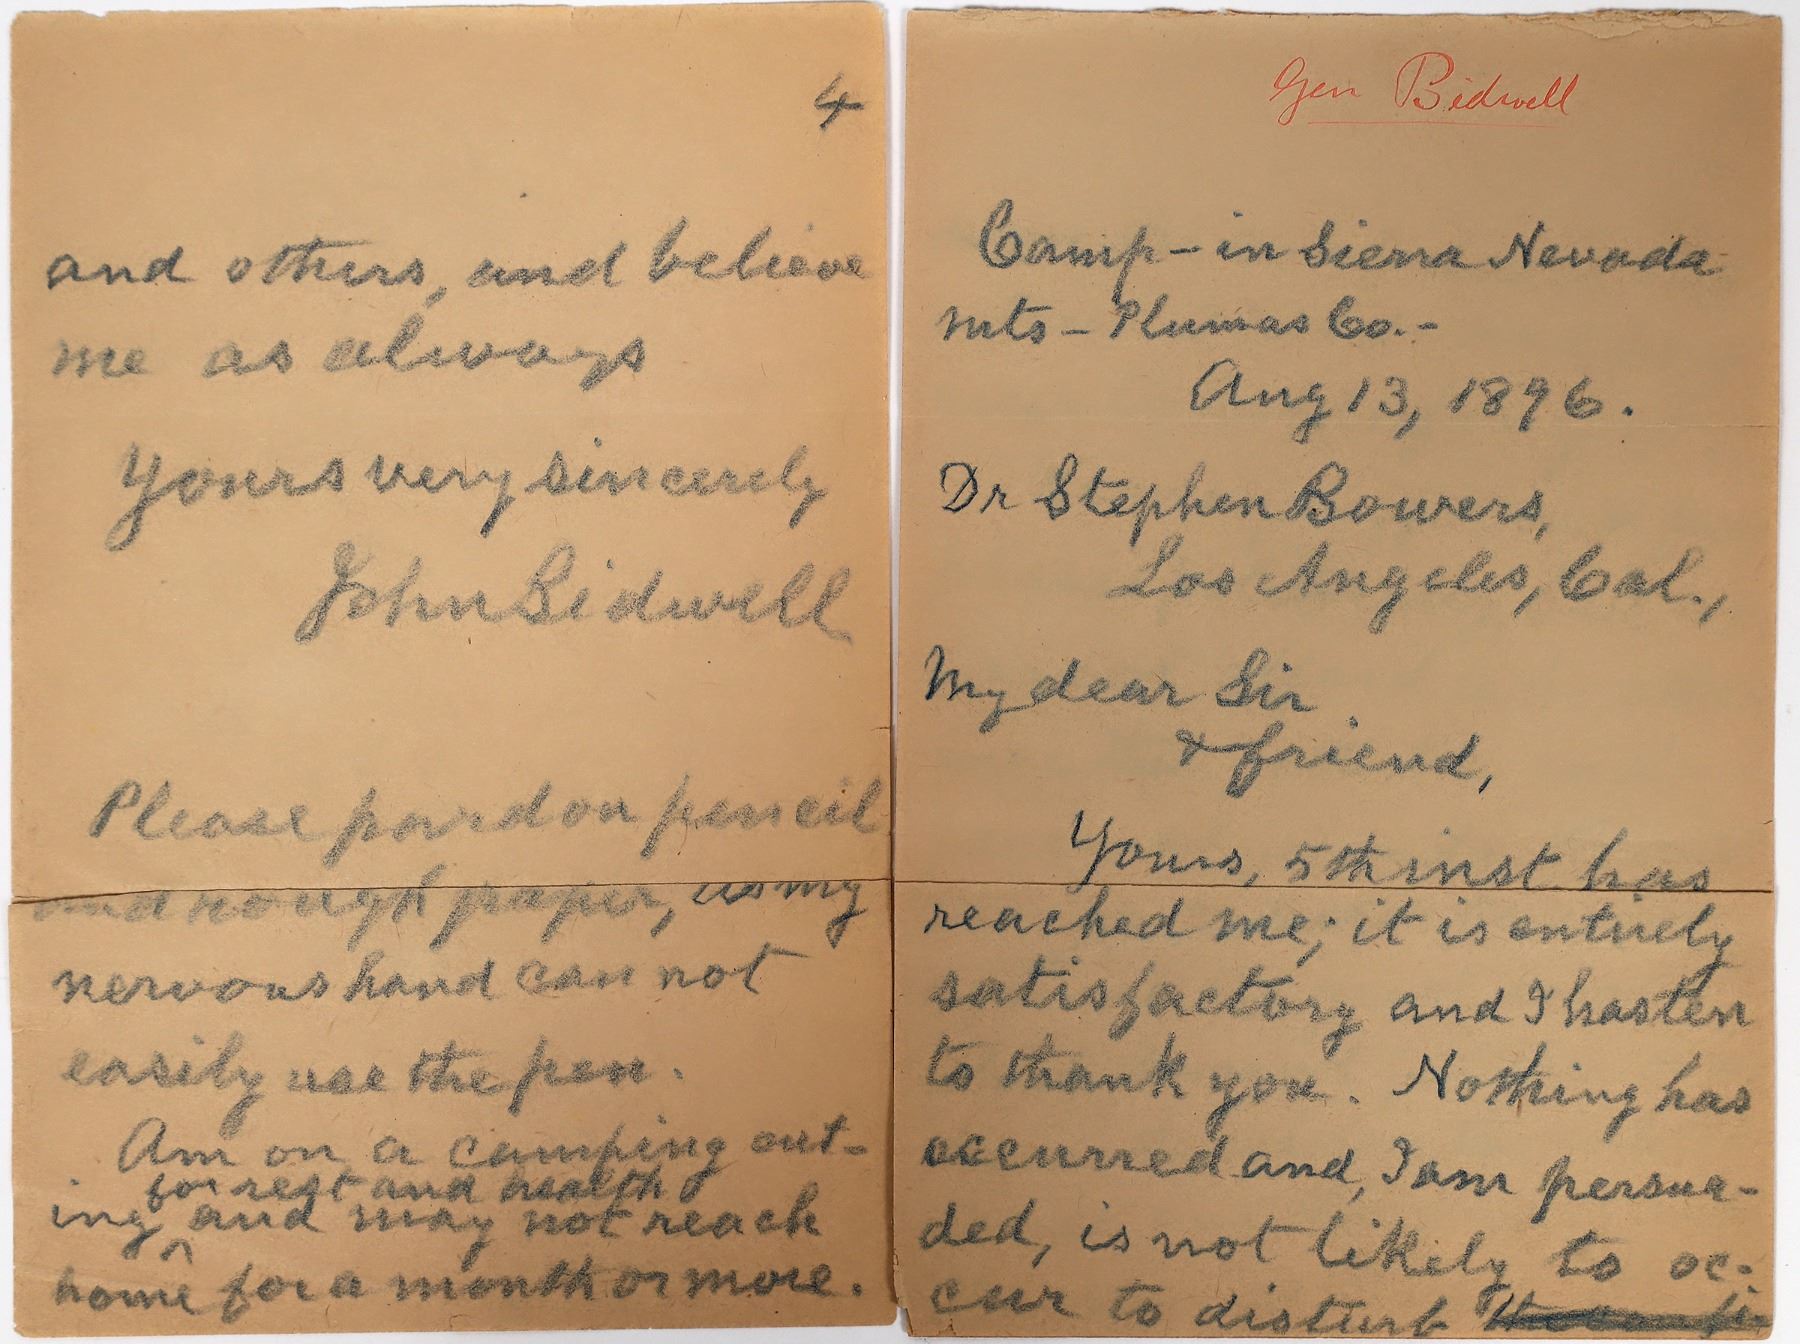 4
and others, and believe
me as always
Yours very sincerely
John Bidwell
Please pardon pencil
and rough paper, as my
nervous hand can not
easily use the pen.
Am on a camping out-
for rest and health
ing ^ and may not reach
home for a month or more.
Gen Bidwell
Camp - in Sierra Nevada
mts - Plumas Co. -
Aug 13, 1896.
Dr Stephen Bowers,
Los Angeles, Cal.,
My dear Sir
& friend,
Yours, 5th inst has
reached me; it is entirely
satisfactory and I hasten
to thank you. Nothing has
occurred and, I am persua-
ded, is not likely to oc-
cur to disturb